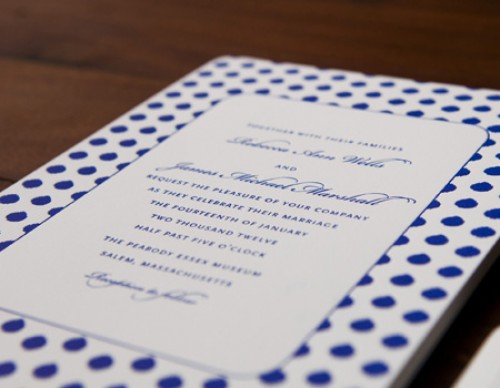 TOGETHER WITH THEIR FAMILIES
Rebecca Ann Wells
AND
James Michael Marshall
REQUEST THE PLEASURE OF YOUR COMPANY
AS THEY CELEBRATE THEIR MARRIAGE
THE FOURTEENTH OF JANUARY
TWO THOUSAND TWELVE
HALF PAST FIVE O'CLOCK
THE PEABODY ESSEX MUSEUM
SALEM, MASSACHUSETTS
Reception to follow